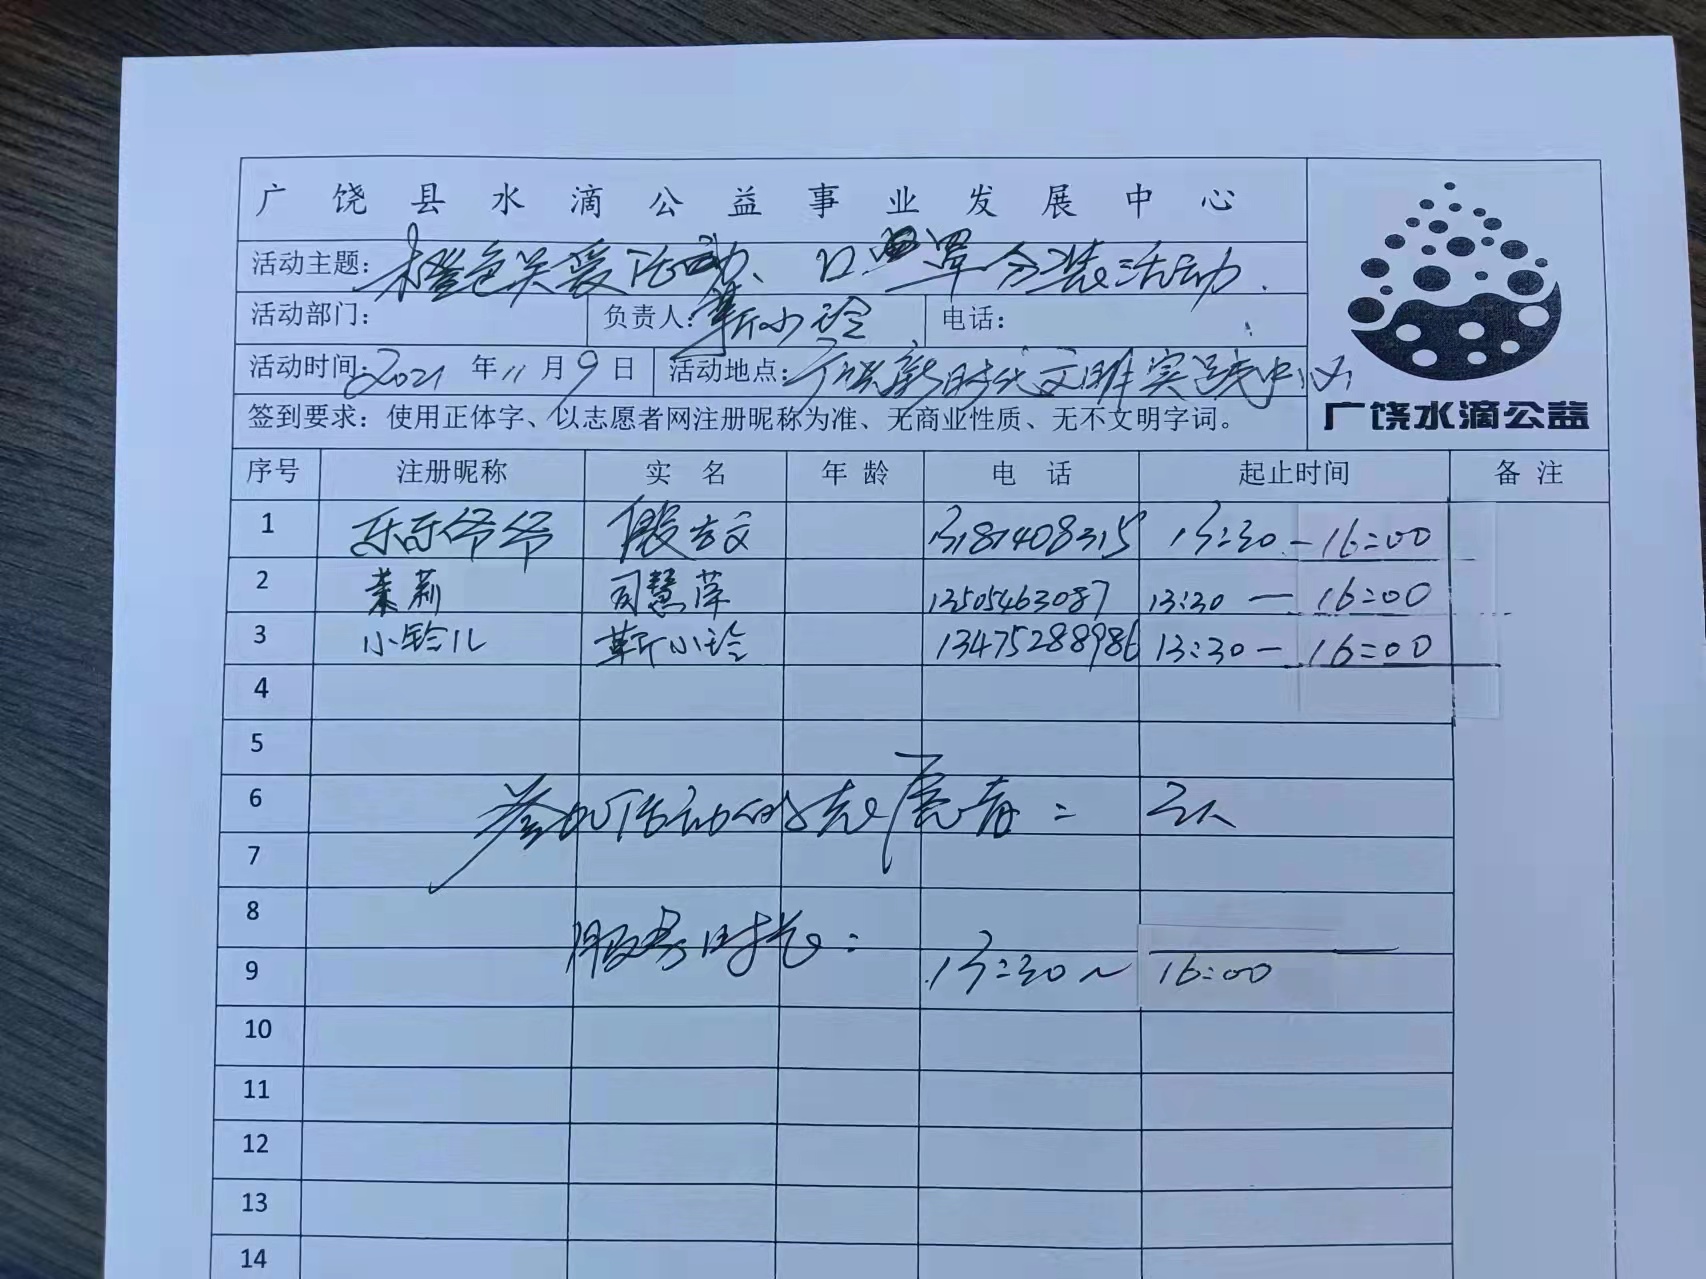 广饶县水滴公益事业发展中心
活动主题：橙色关爱活动、口罩分装活动.
活动部门： 负责人：靳小玲 电话：
活动时间：2021年11月9日 活动地点：广饶新时代文明实践中心
签到要求：使用正体字、以志愿者网注册昵称为准、无商业性质、无不文明字词。
广饶水滴公益
序号 注册昵称 实名 年龄 电话 起止时间 备注
1 乐乐爷爷 殷方文 13181408315 13:30-16:00
2 茉莉 司慧萍 13505463087 13:30-16:00
3 小铃儿 靳小玲 13475288986 13:30-16:00
4
5
6 参加活动的志愿者： 3人
7
8 服务时长：
9 13:30~16:00
10
11
12
13
14